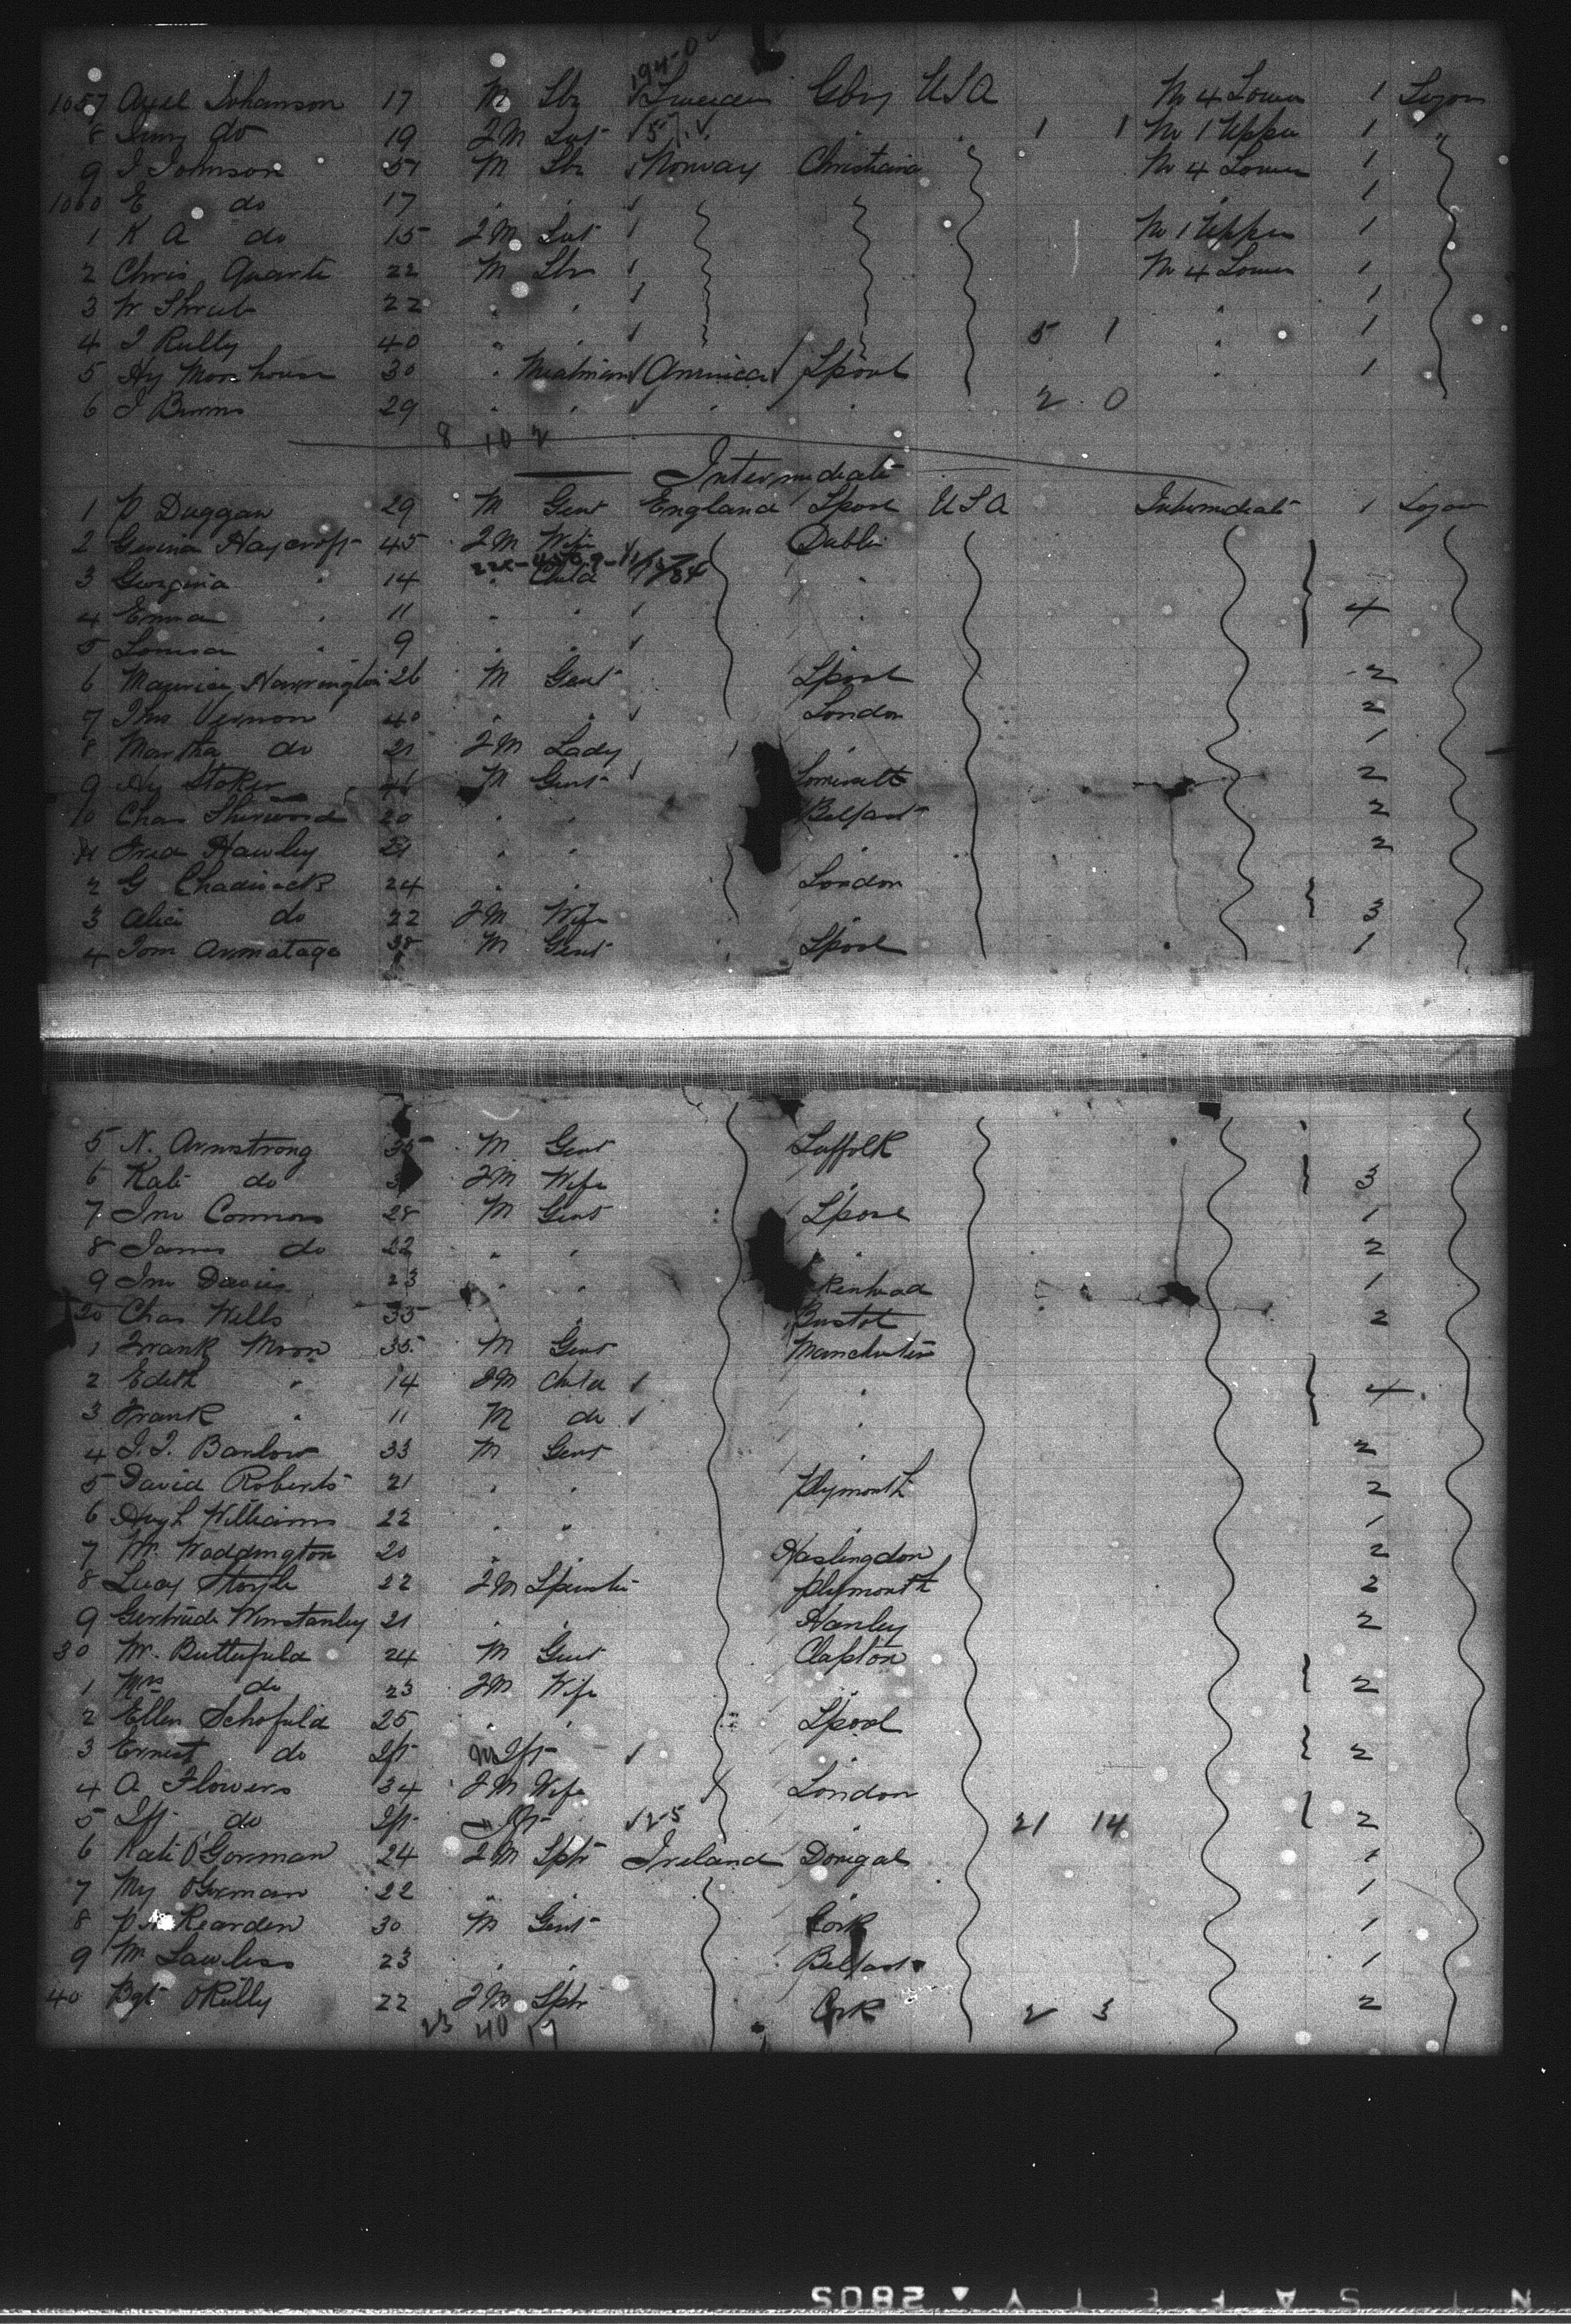 194-0
1057 Axel Johanson 17 M Lbr Sweden Gbg USA No 4 Lower 1 Sojon
8 Jenny do 19 FM Svt 57 1 1 No 1 Upper 1 "
9 J Johnson 51 M Lbr Norway Christiania No 4 Lower 1
1060 E do 17 1
1 K A do 15 FM Svt No 1 Upper 1
2 Chris Quarte 22 M Lbr No 4 Lower 1
3 W Shrub 22 1
4 J Rully 40 5 1 1
5 Hy Moorhouse 30 America Lpool 1
6 J Burns 29 2 0
8 10 2
Intermediate
1 P Duggan 29 M Gent England Lpool USA Intermediate 1 Sojon
2 Haycroft 45 FM Wife Dublin
3 Georgina " 14 " Child
4 Emma " 11 4
5 Louisa " 9
6 Maurice Harrington 26 M Gent Lpool 2
7 Thos Vernon 40 London 2
8 Martha do 21 FM Lady 1
9 Hy Stoker 46 M Gent 2
10 Chas Sherwood 20 Belfast 2
11 Fred Hawley 21 2
2 G Chadwick 24 London
3 Alice do 22 FM Wife 3
4 Tom Armatage 38 M Gent Lpool 1
5 N. Armstrong 35 M Gent Suffolk
6 Kate do FM Wife 3
7 Jno Connors 28 M Gent Lpool 1
8 James do 22 2
9 Jno Davies 23 kenhead 1
20 Chas Wells 35 Bristol 2
1 Frank Moon 35 M Gent Manchester
2 Edith " 14 FM Child 4
3 Frank " 11 M do
4 J. J. Barlow 33 M Gent 2
5 David Roberts 21 Plymouth 2
6 Hugh Williams 22 1
7 W. Waddington 20 Haslingdon 2
8 Lucy 22 FM Spinster Plymouth 2
9 Gertrude Winstanley 21 Hanley 2
30 W. Butterfield 24 M Gent Clapton
1 Mrs do 23 FM Wife 2
2 Ellen Schofield 25 Lpool
3 Ernest do Inft M Inft 2
4 A Flowers 34 FM Wife London
5 Inft do Inft Inft 21 14 2
6 Kate O'Gorman 24 FM Sptr Ireland Donegal 1
7 My O'Gorman 22 1
8 Rearden 30 M Gent Cork 1
9 M Lawless 23 Belfast 1
40 Bgt O'Rielly 22 FM Sptr Cork 2 3 2
23 40 17